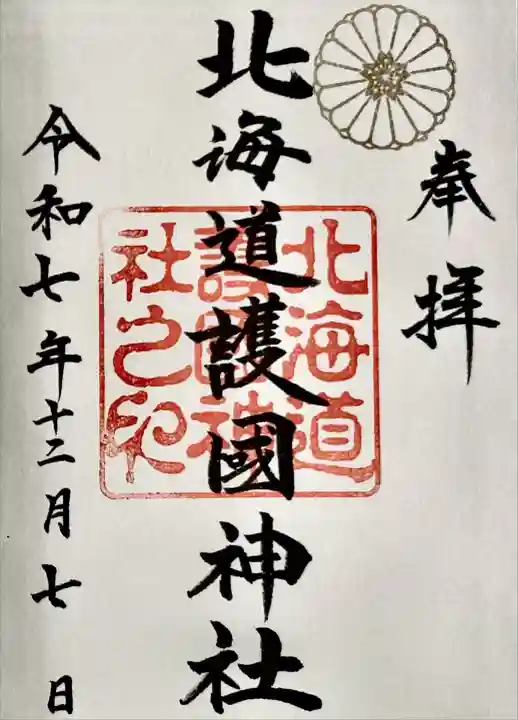 奉拝
北海道護國神社
北海道
護國神
社之印
令和七年十二月七日